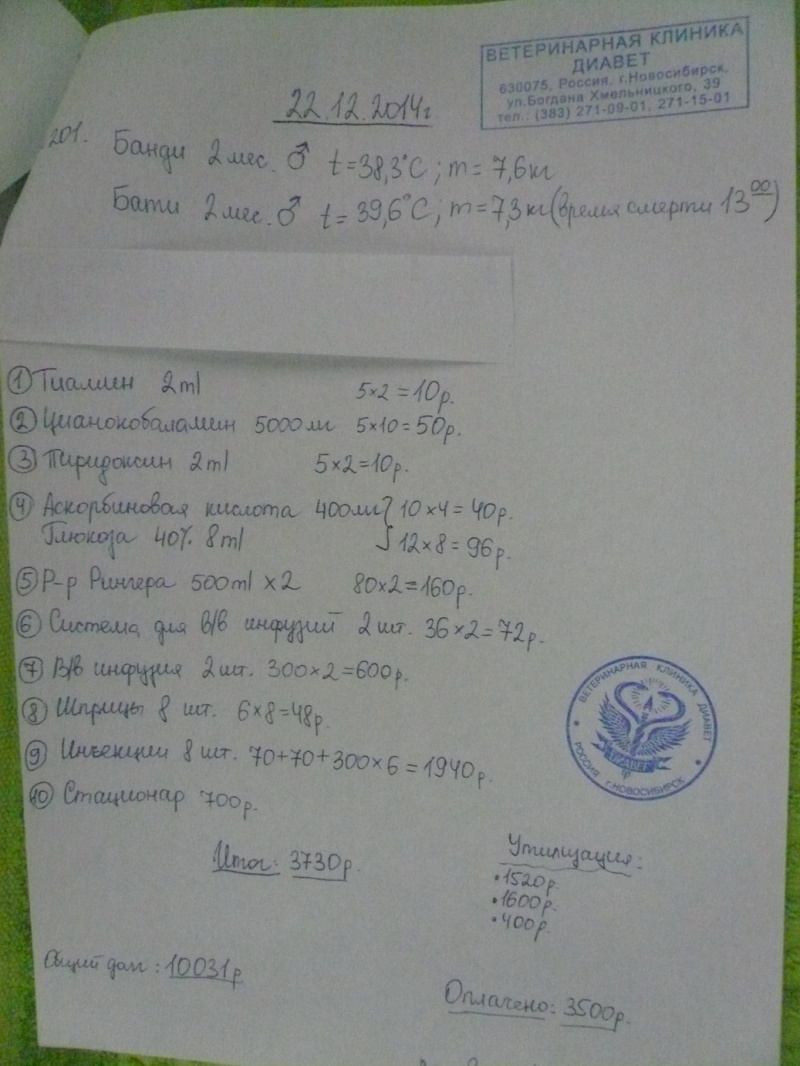 ВЕТЕРИНАРНАЯ КЛИНИКА
ДИАВЕТ
630075, Россия, г.Новосибирск,
ул.Богдана Хмельницкого, 39
тел.: (383) 271-09-01, 271-15-01
22.12.2014г
201. Банди 2 мес. ♂ t=38,3°C; m=7,6кг
Бати 2 мес. ♂ t=39,6°C; m=7,3кг (время смерти 13 00)
① Тиамин 2ml 5×2=10р.
② Цианокобаламин 5000 5×10=50р.
③ Пиридоксин 2ml 5×2=10р.
④ Аскорбиновая кислота 400 10×4=40р.
Глюкоза 40% 8ml 12×8=96р.
⑤ Р-р Рингера 500ml ×2 80×2=160р.
⑥ Система для в/в инфузий 2 шт. 36×2=72р.
⑦ В/в инфузия 2 шт. 300×2=600р.
⑧ Шприцы 8 шт. 6×8=48р.
⑨ Инъекции 8 шт. 70+70+300×6=1940р.
⑩ Стационар 700р.
Итог: 3730р.
Утилизация:
• 1520р.
• 1600р.
• 400р.
Общий долг: 10031р
Оплачено: 3500р.
ВЕТЕРИНАРНАЯ КЛИНИКА ДИАВЕТ
РОССИЯ г.НОВОСИБИРСК